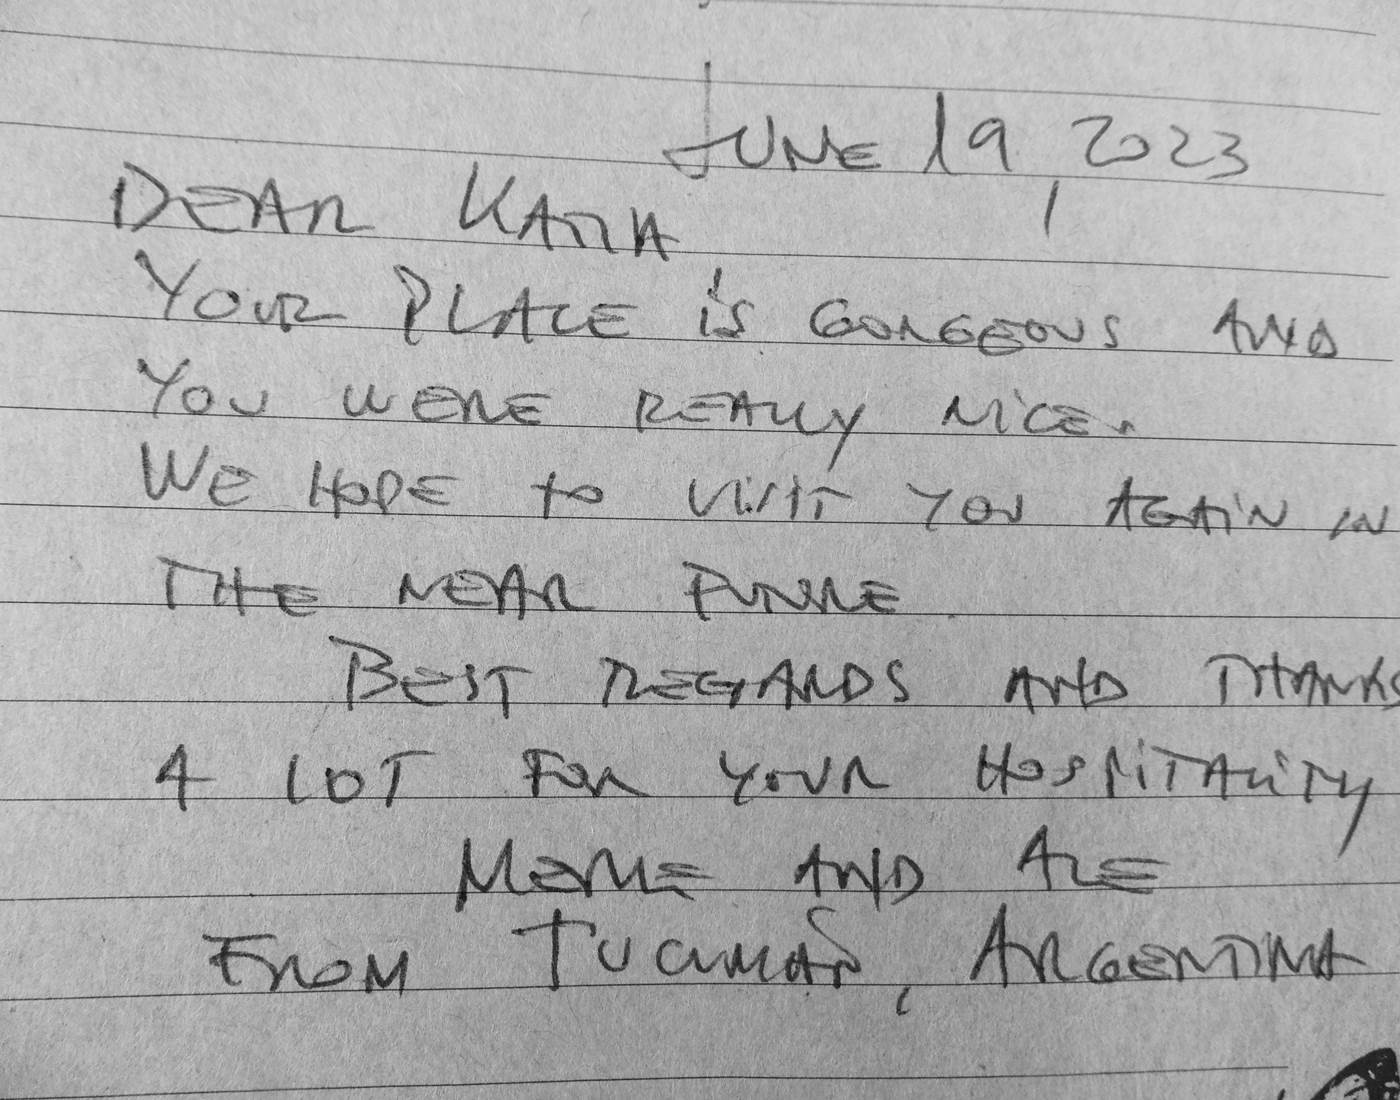 JUNE 19, 2023
DEAR KATIA
YOUR PLACE is GORGEOUS AND
YOU WERE REALLY NiCE.
WE HOPE to VISIT YOU AGAiN IN
THE NEAR FUTURE.
BEST REGARDS AND THANKS
A LOT FOR YOUR HOSPiTALiTY
MEME AND ALE
FROM TUCUMAN, ARGENTINA